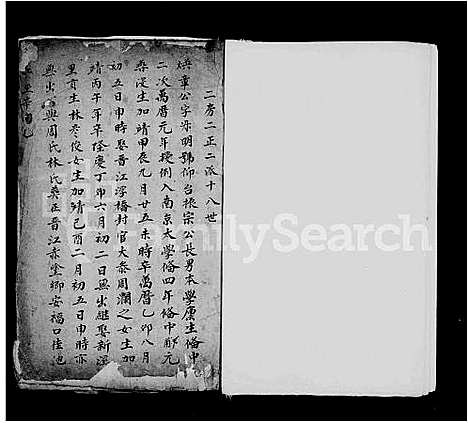 二房二正二派十八世
璜章公字汝明號仰台振宗公長男本學廩生俻中
二次萬曆元年援例入南京太學俻四年俻中鄉元
春溪生加靖甲辰九月廿五未時卒萬曆乙卯八月
初五日申時娶晋江浮橋封官大叅周瀾之女生加
靖丙午年卒隆慶丁卯六月初二日無出継娶新溪
里貢生林孝俊女生加靖己酉二月初五日申時亦
無出與周氏林氏葬在晋江赤塗鄉安福口佳地
FamilySearch